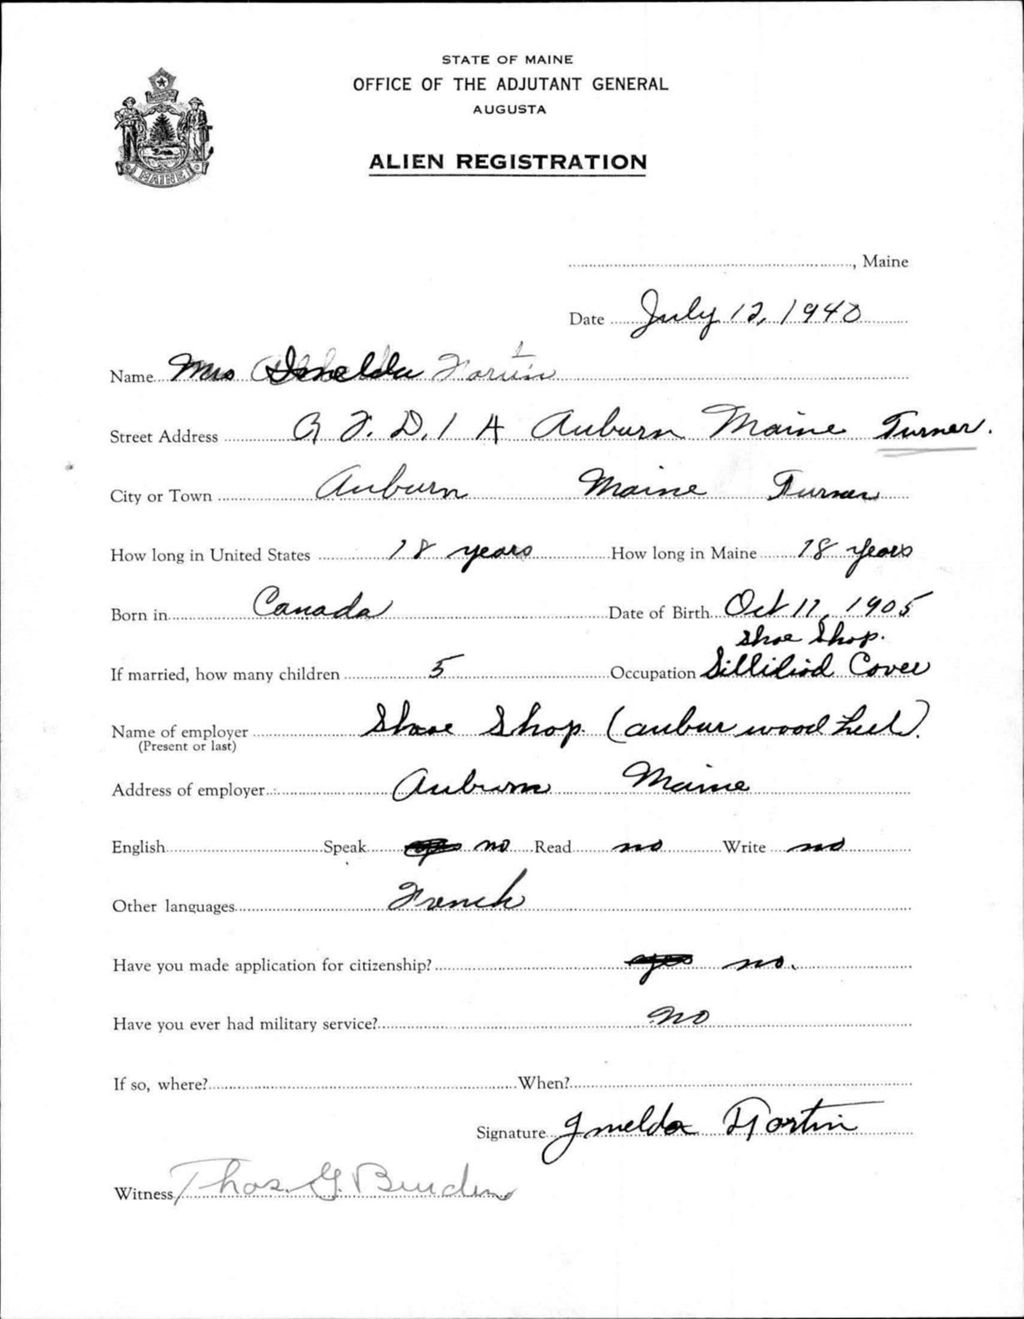 STATE OF MAINE
OFFICE OF THE ADJUTANT GENERAL
AUGUSTA
MAINE
ALIEN REGISTRATION
, Maine
Date July 12, 1940
Name Mrs Imelda Fortin
Street Address R F. D. 1 A Auburn Maine Turner.
City or Town Auburn Maine Turner
How long in United States 18 years How long in Maine 18 years
Born in Canada Date of Birth Oct 11, 1905
Shoe Shop.
If married, how many children 5 Occupation Cover
Name of employer Shoe Shop (aubur wood heel).
(Present or last)
Address of employer Auburn Maine
English Speak no Read no Write no
Other languages French
Have you made application for citizenship? yes no.
Have you ever had military service? no
If so, where? When?
Signature Imelda Fortin
Witness Thos. G. Burden